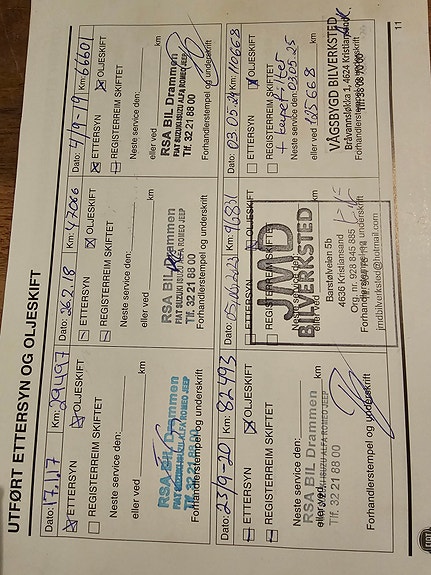 UTFØRT ETTERSYN OG OLJESKIFT
Dato: 17.1.17 Km: 29497
ETTERSYN OLJESKIFT
REGISTERREIM SKIFTET
Neste service den:
eller ved km
RSA BIL Drammen
FIAT SUZUKI ISUZU ALFA ROMEO JEEP
Tlf. 32 21 88 00
Forhandlerstempel og underskrift
Dato: 26.2.18 Km: 47066
ETTERSYN OLJESKIFT
REGISTERREIM SKIFTET
Neste service den:
eller ved km
RSA BIL Drammen
FIAT SUZUKI ISUZU ALFA ROMEO JEEP
Tlf. 32 21 88 00
Forhandlerstempel og underskrift
Dato: 4/9-19 Km: 66601
ETTERSYN OLJESKIFT
REGISTERREIM SKIFTET
Neste service den:
eller ved km
RSA BIL Drammen
FIAT SUZUKI ISUZU ALFA ROMEO JEEP
Tlf. 32 21 88 00
Forhandlerstempel og underskrift
Dato: 23/9-20 Km: 82493
ETTERSYN OLJESKIFT
REGISTERREIM SKIFTET
Neste service den:
eller ved km
RSA BIL Drammen
FIAT SUZUKI ISUZU ALFA ROMEO JEEP
Tlf. 32 21 88 00
Forhandlerstempel og underskrift
Dato: Km:
ETTERSYN OLJESKIFT
REGISTERREIM SKIFTET
Neste service den:
JMD
BILVERKSTED
Barstølveien 5b
4636 Kristiansand
Org. nr. 928 845 885
Forhandlerstempel og underskrift
jmdbilverksted@hotmail.com
Dato: 03.05.24 Km: 110668
ETTERSYN OLJESKIFT
REGISTERREIM SKIFTET
Neste service den: 03.05.25
eller ved 125668 km
VÅGSBYGD BILVERKSTED
Bråvannsløkka 1, 4624 Kristiansand
Tlf: 38 08 70 00
Forhandlerstempel og underskrift
11